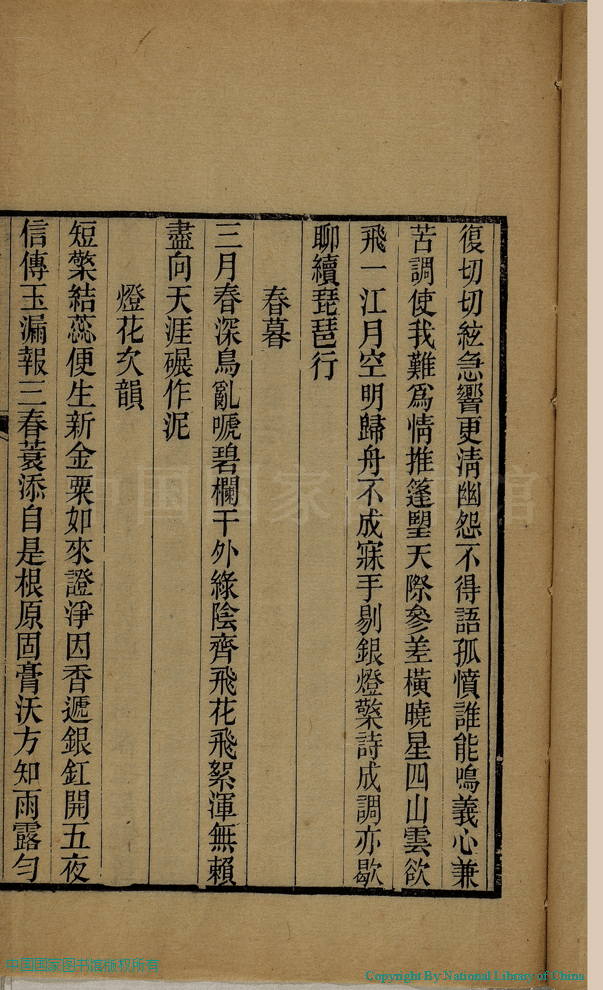 復切切絃急響更淸幽怨不得語孤憤誰能鳴義心兼
苦調使我難爲情推篷朢天際參差橫曉星四山雲欲
飛一江月空明歸舟不成寐手剔銀燈檠詩成調亦歇
聊續琵琶行
春暮
三月春深鳥亂嗁碧欄干外綠陰齊飛花飛絮渾無賴
盡向天涯碾作泥
燈花次韻
短檠結蕊便生新金粟如來證淨因香遞銀釭開五夜
信傳玉漏報三春蓂添自是根原固膏沃方知雨露勻
中国国家图书馆
中国国家图书馆版权所有
Copyright By National Library of China